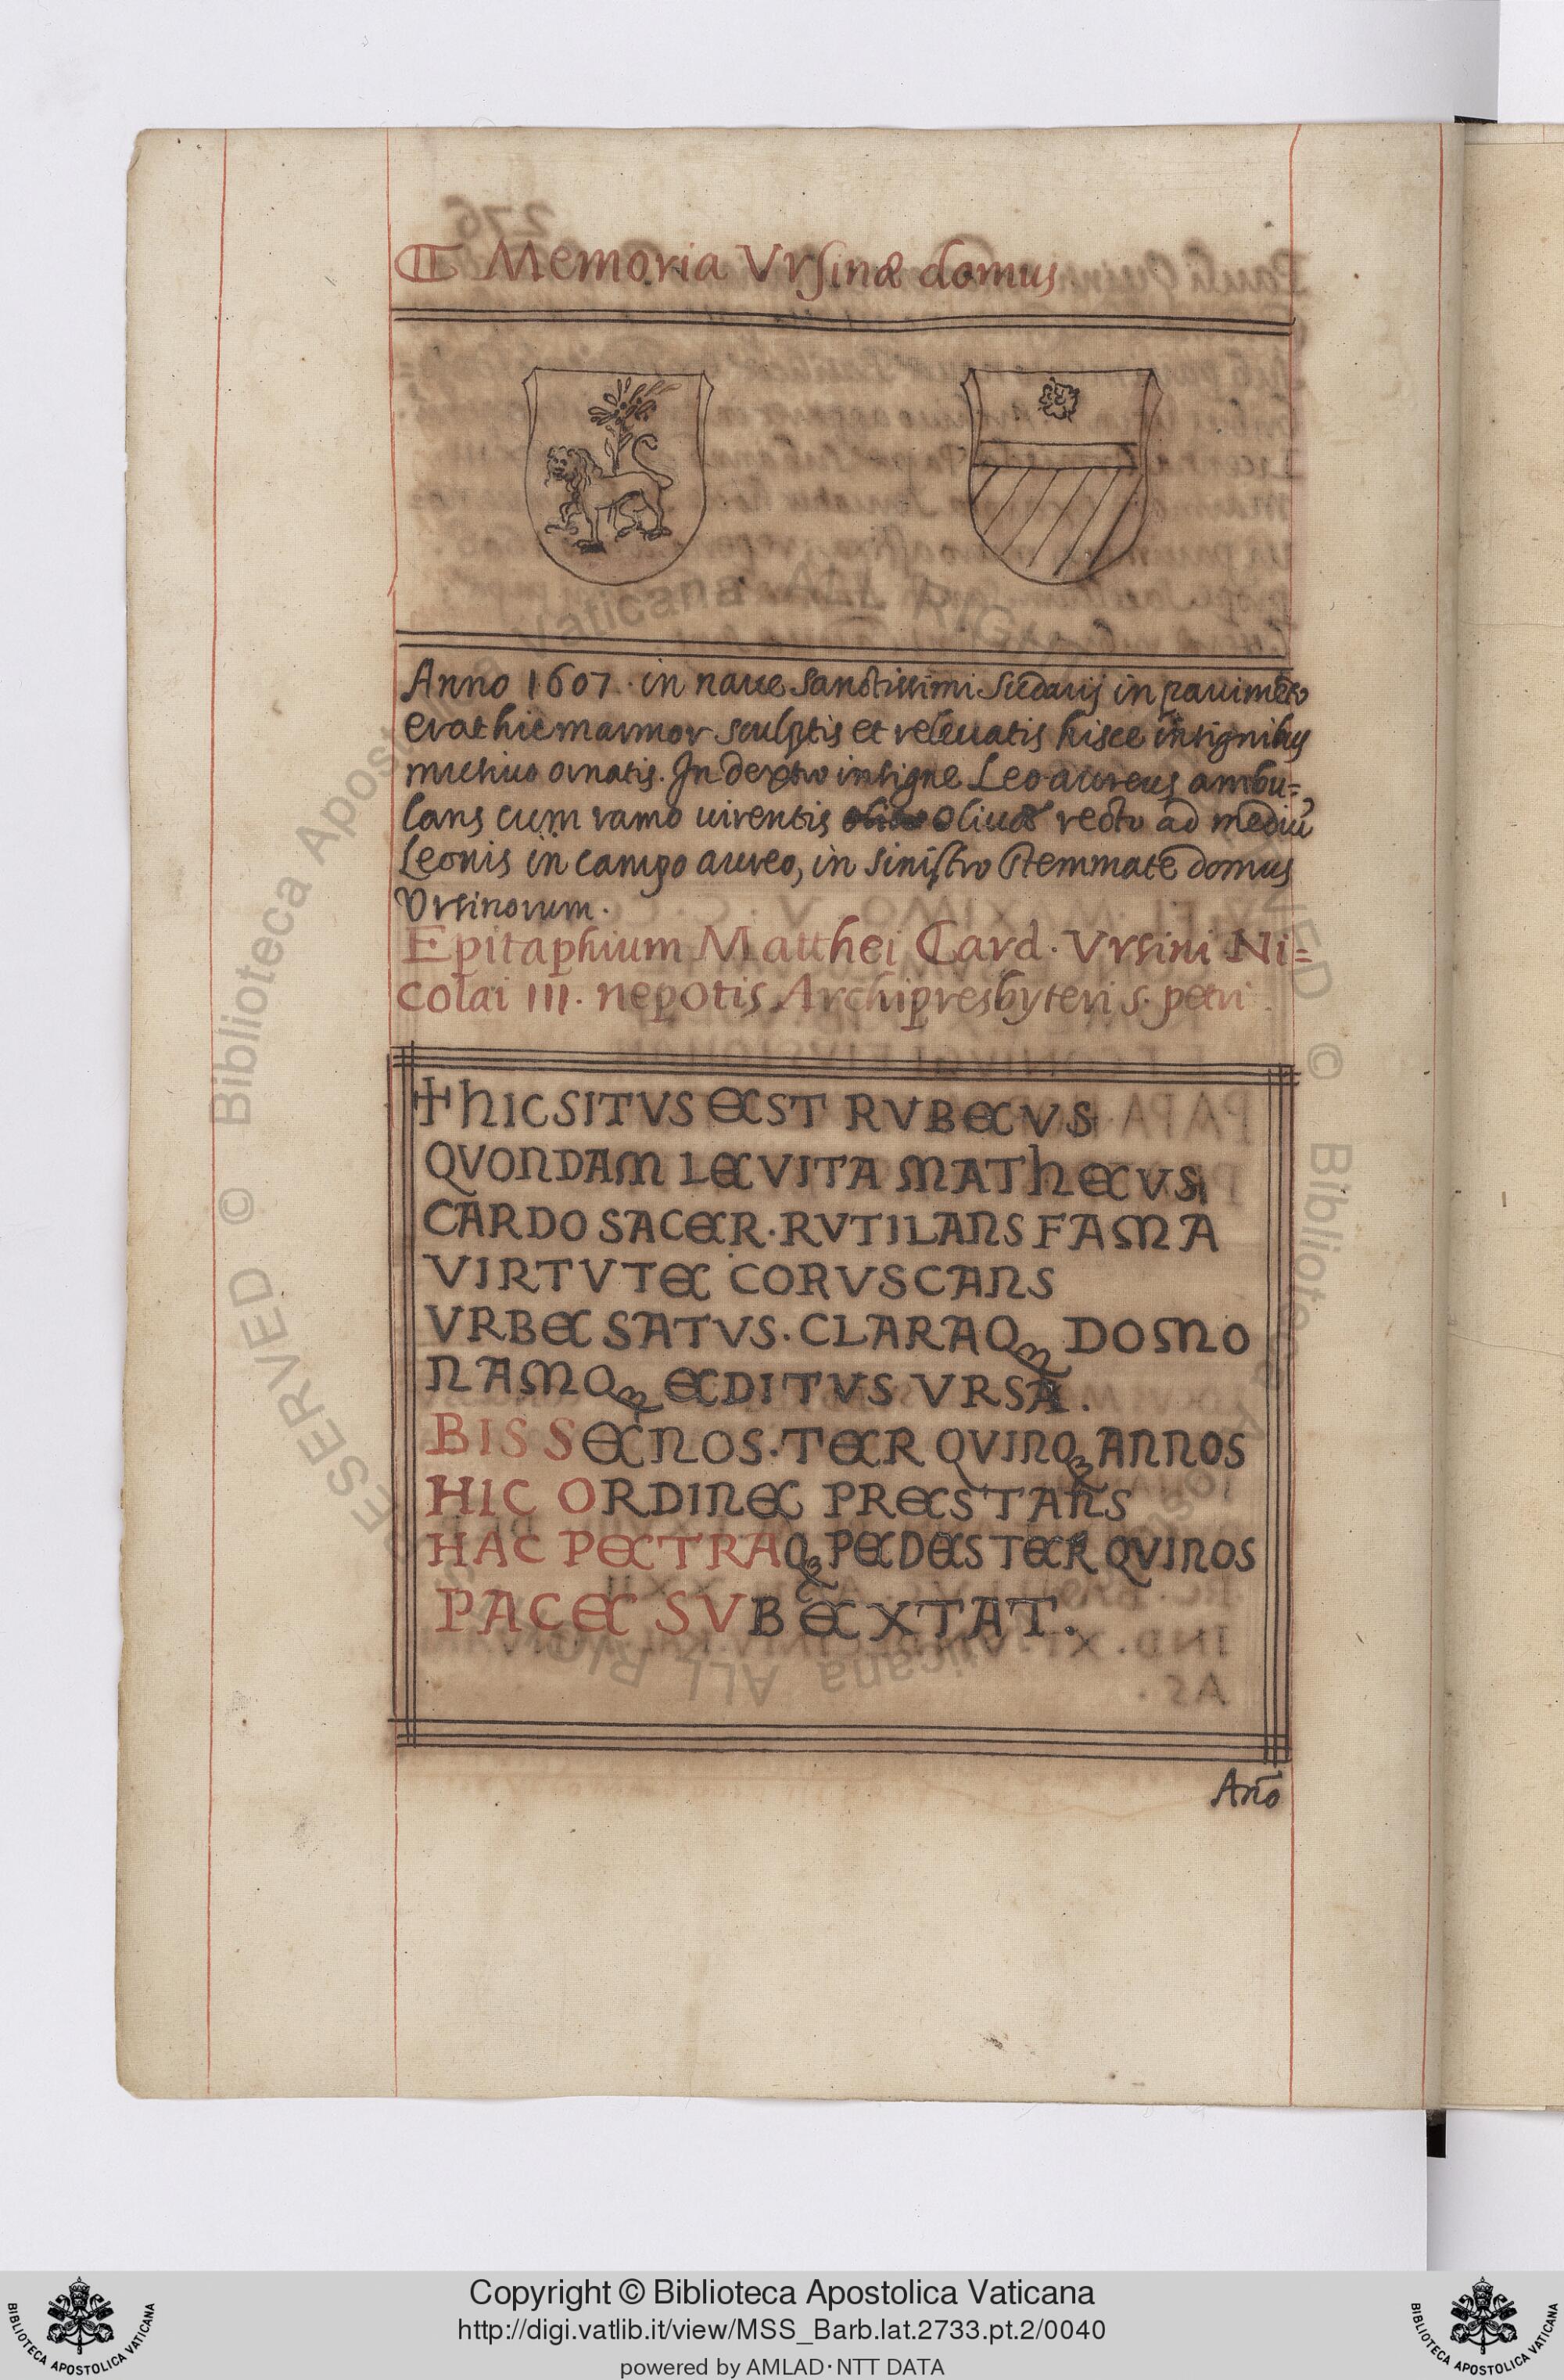 ¶ Memoria Vrsinæ domus
Anno 1607. in naue sanctissimi Sudarij in pauimēto
erat hic marmor sculptis et releuatis hisce insignibus
musiuo ornatis. In dextro insigne Leo aureus ambu=
lans cum ramo uirentis oliuæ recto ad mediū
Leonis in campo aureo, in sinistro stemmate domus
Vrsinorum.
Epitaphium Matthei Card. Vrsini Ni=
colai III. nepotis Archipresbyteri s. petri.
+ HIC SITVS EST RVBEVS
QVONDAM LEVITA MATHEVS
CARDO SACER. RVTILANS FAMA
VIRTVTE CORVSCANS
VRBE SATVS. CLARAQꝫ DOMO
NAMQꝫ EDITVS VRSA.
BIS SENOS. TER QVINQꝫ ANNOS
HIC ORDINE PRESTANS
HAC PETRAQꝫ PEDES TER QVINOS
PACE SVB EXTAT.
Año
Copyright © Biblioteca Apostolica Vaticana
http://digi.vatlib.it/view/MSS_Barb.lat.2733.pt.2/0040
powered by AMLAD·NTT DATA
BIBLIOTECA APOSTOLICA VATICANA
BIBLIOTECA APOSTOLICA VATICANA